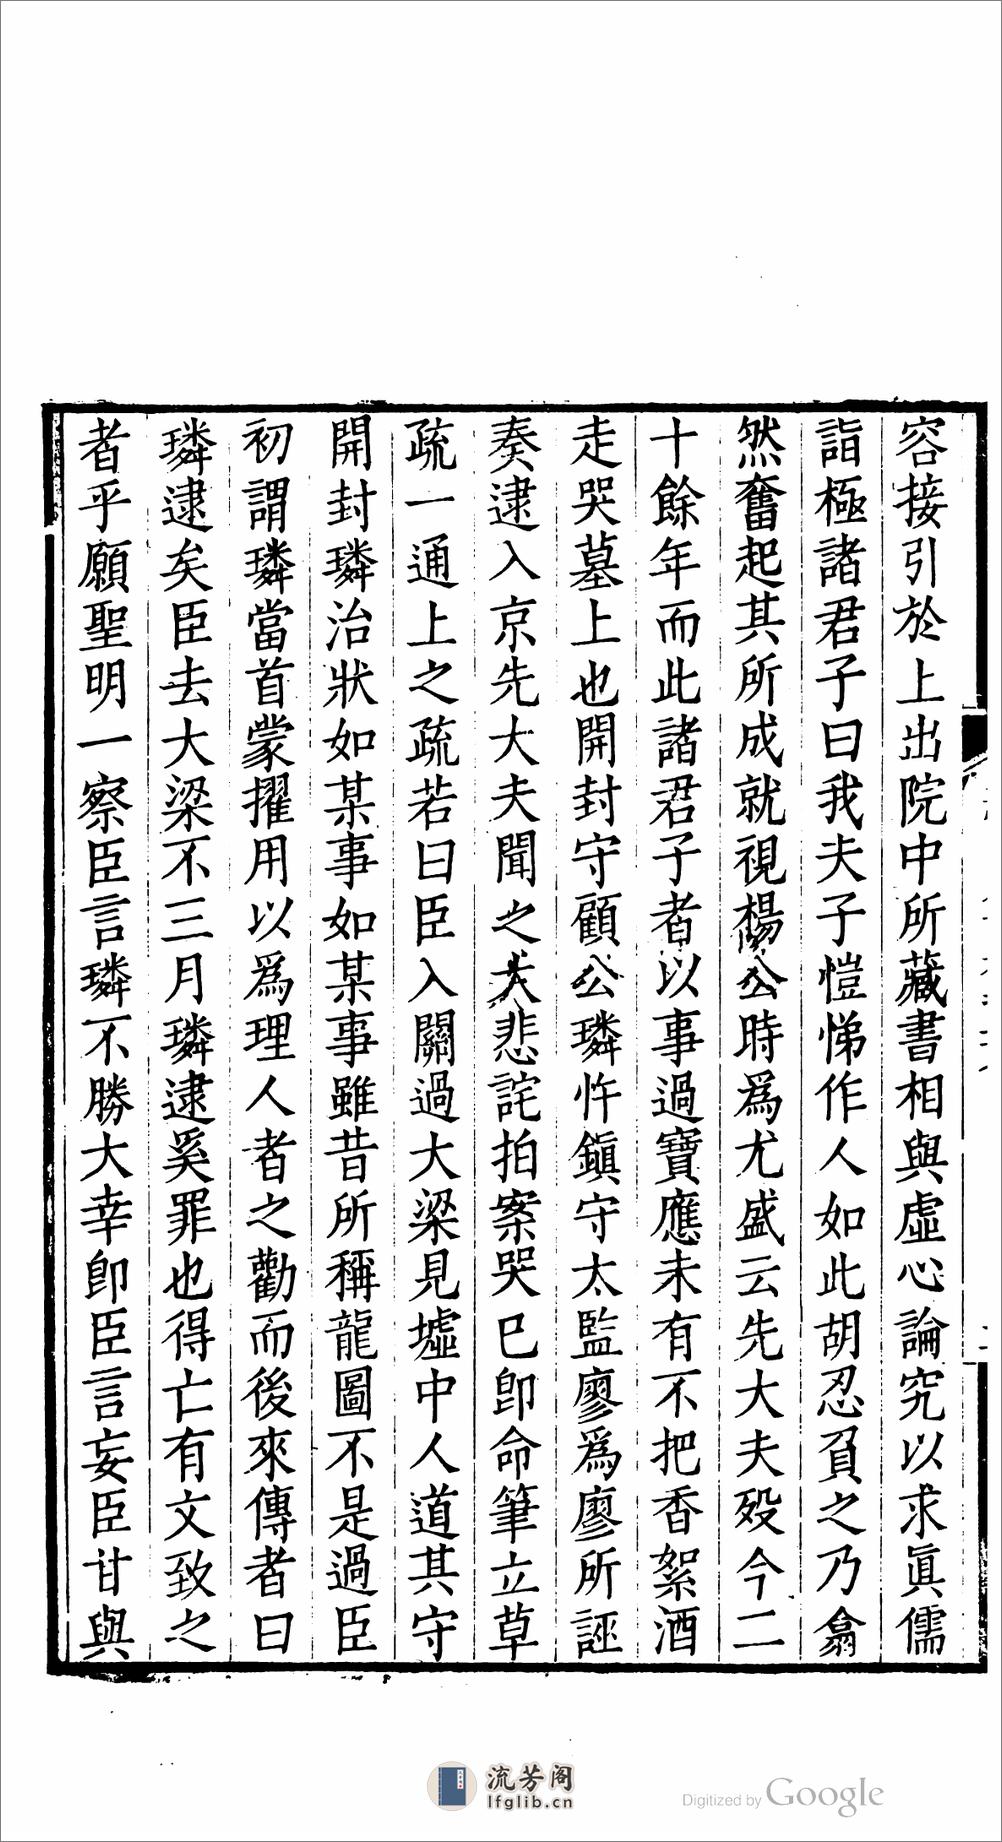 容接引於上出院中所藏書相與虛心論究以求眞儒
詣極諸君子曰我夫子愷悌作人如此胡忍負之乃翕
然奮起其所成就視楊公時爲尤盛云先大夫歿今二
十餘年而此諸君子者以事過寶應未有不把香絮酒
走哭墓上也開封守顧公璘忤鎭守太監廖爲廖所誣
奏逮入京先大夫聞之大悲詫拍案哭已卽命筆立草
疏一通上之疏若曰臣入關過大梁見墟中人道其守
開封璘治狀如某事如某事雖昔所稱龍圖不是過臣
初謂璘當首蒙擢用以爲理人者之勸而後來傳者曰
璘逮矣臣去大梁不三月璘逮奚罪也得亡有文致之
者乎願聖明一察臣言璘不勝大幸卽臣言妄臣甘與
流芳阁
lfglib.cn
Digitized by Google